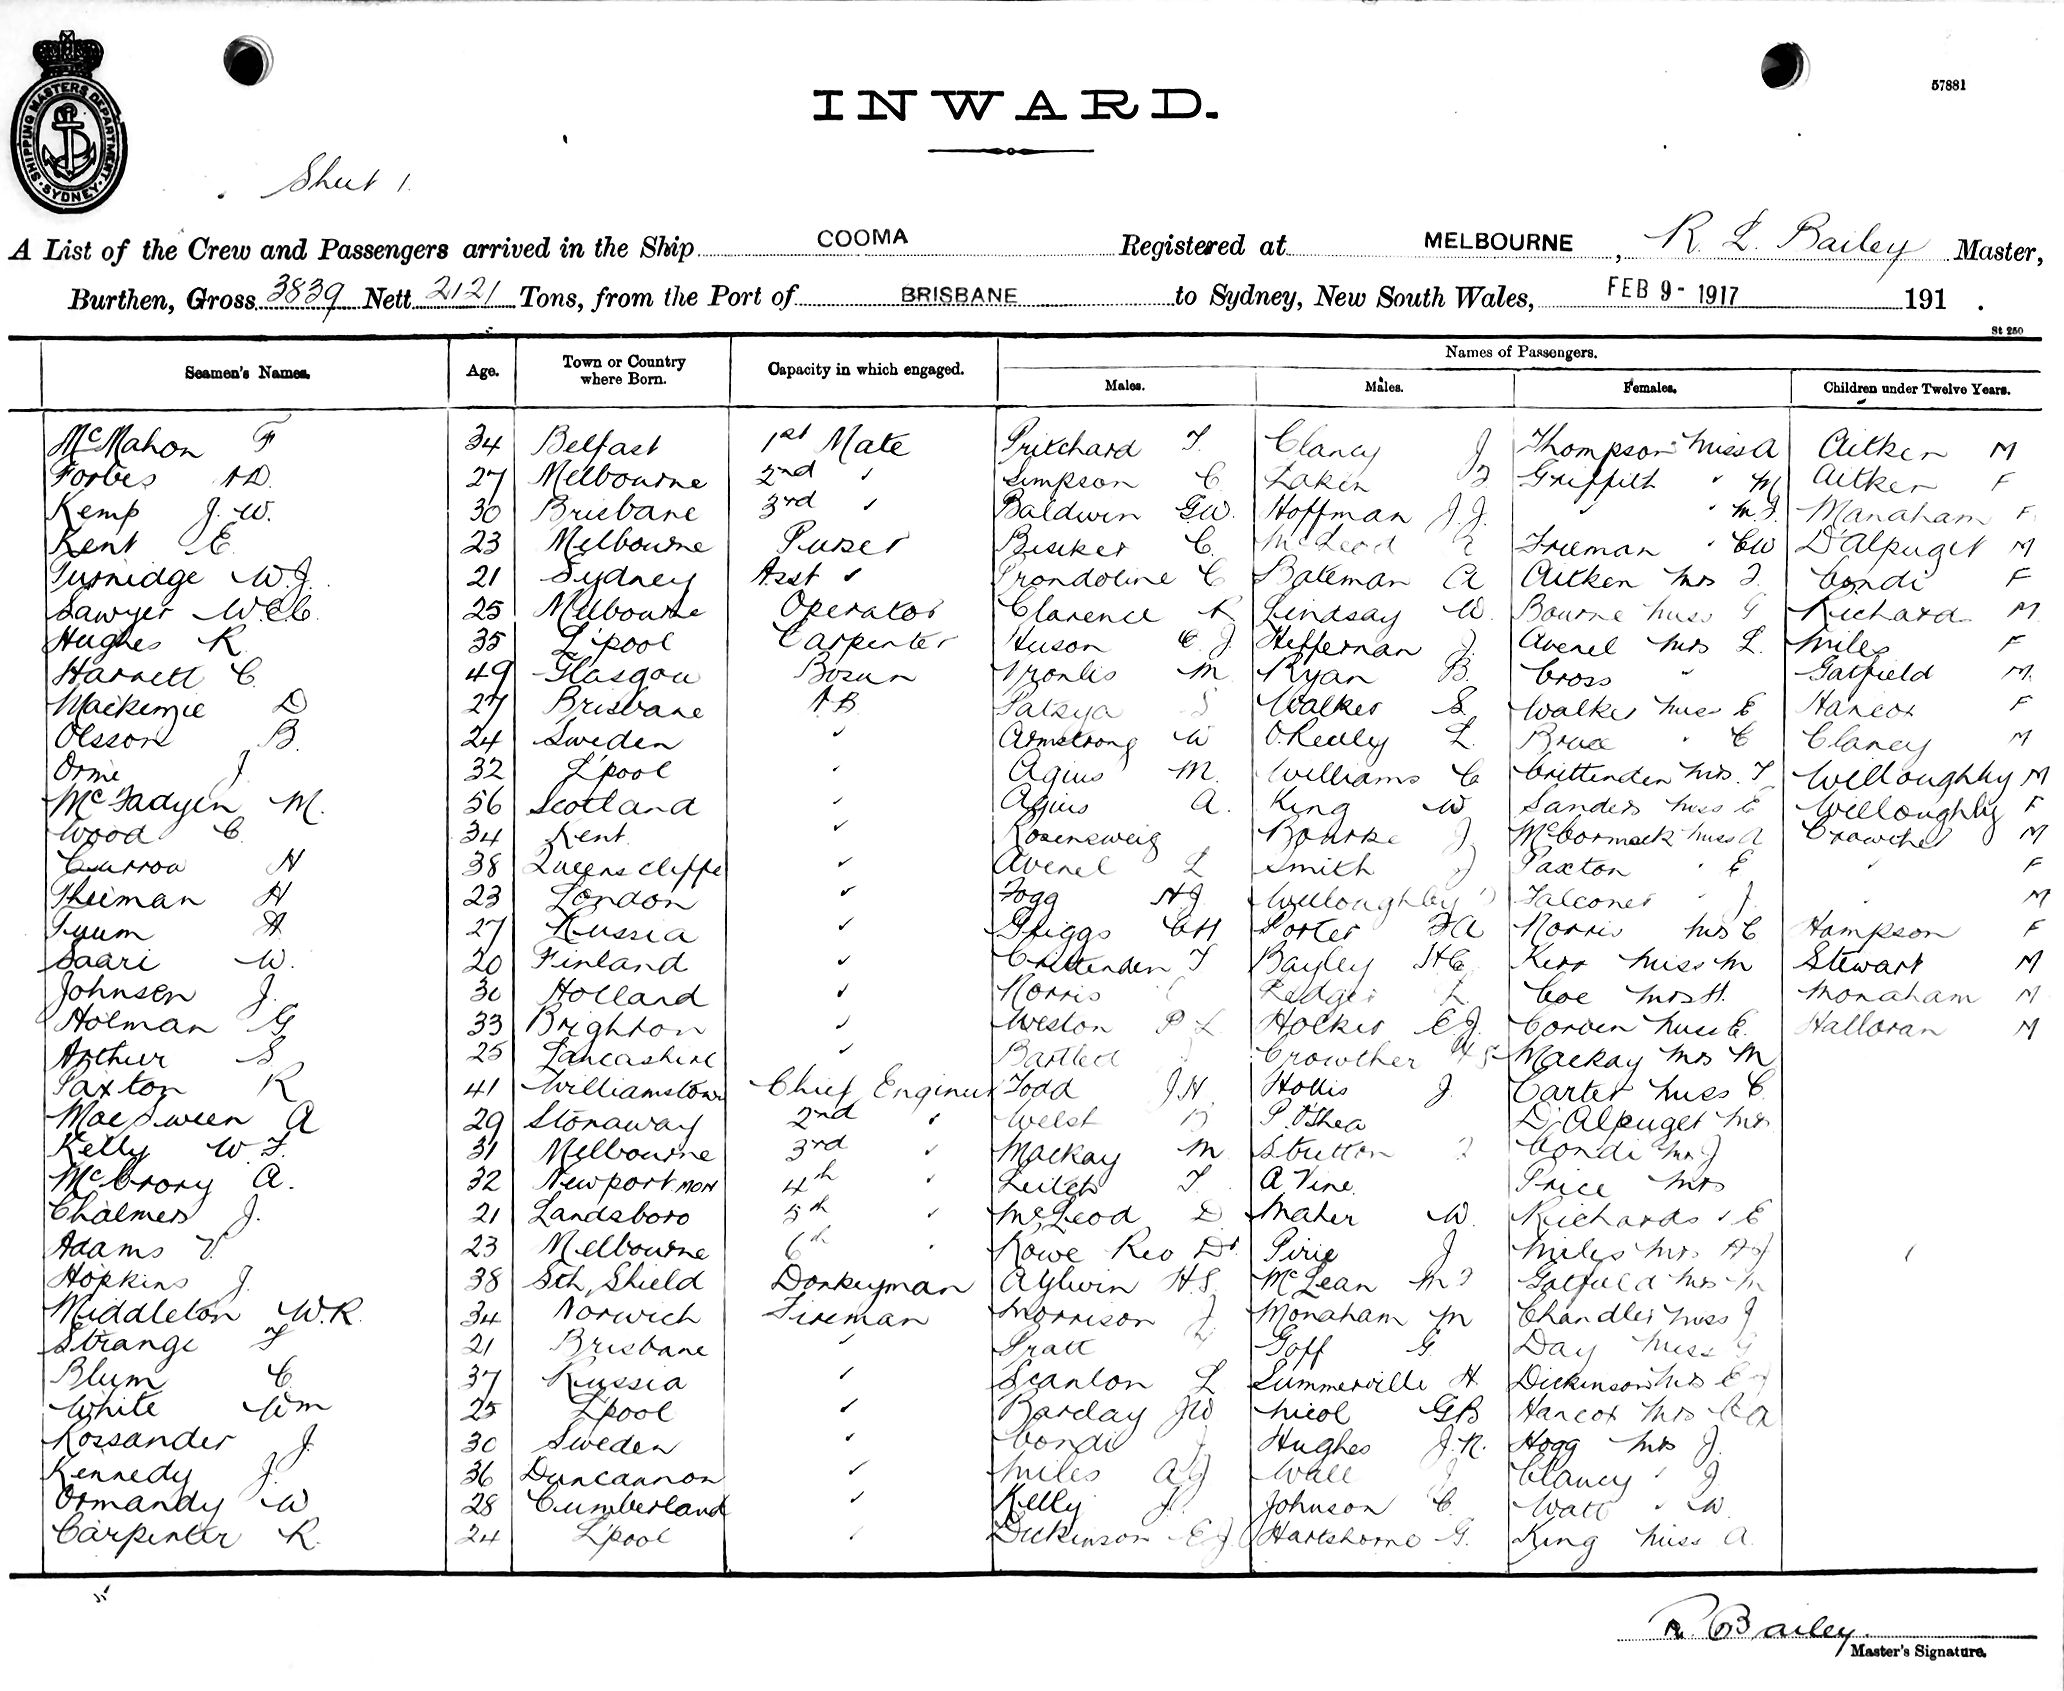 SHIPPING MASTERS DEPARTMENT
SYDNEY
57881
INWARD.
Sheet 1.
A List of the Crew and Passengers arrived in the Ship COOMA Registered at MELBOURNE, R. L. Bailey Master,
Burthen, Gross 3839 Nett 2121 Tons, from the Port of BRISBANE to Sydney, New South Wales, FEB 9 - 1917 191 .
St 250
Seamen's Names. Age. Town or Country where Born. Capacity in which engaged. Names of Passengers.
Males. Males. Females. Children under Twelve Years.
McMahon F 34 Belfast 1st Mate Pritchard T. Clancy J Thompson Miss A Aitken M
Forbes AD. 27 Melbourne 2nd " Simpson C. Lakin Griffith " M Aitken F
Kemp J. W. 30 Brisbane 3rd " Baldwin GW. Hoffman J.J. " " Manaham F.
Kent E. 23 Melbourne Purser C. McLeod Freeman " CW D'Alpuget M
Turnidge W.J. 21 Sydney Asst " C Bateman A Aitken Mrs Condi F
Sawyer W.E.C. 25 Melbourne Operator Clarence R Lindsay W. Bourne Miss G Richard M
Hughes R. 35 L'pool Carpenter Huson C J Heffernan J. Avenel Mrs L. Miles F
Harnett C. 49 Glasgow Bosun M Ryan B. Cross " Gatfield M.
Mackenzie D 27 Brisbane AB S Walker S. Walker Miss E Hancox F
Olsson B. 24 Sweden " Armstrong W O.Reilly L. " C Clancy M
Orme J. 32 L'pool " Agius M. Williams C Crittenden Mrs. T Willoughby M
McFadyen M. 56 Scotland " Agius A. King W Sanders Miss E Willoughby F
Wood C. 34 Kent " Rosensweig Bourke J McCormack Miss A Crowther M
Currow H 38 Queenscliffe " Avenel L Smith J Paxton " E " F
Thieman H 23 London " Fogg HJ Willoughby Falconer " J. M
H 27 Russia " Griggs CH Porter FA Norris Mrs C Hampson F
Saari W. 20 Finland " Crittenden T Bayley HC Kerr Miss M Stewart M
Johnsen J. 30 Holland " Norris Ledger L. Coe Mrs H. Monaham M
Holman G 33 Brighton " Weston P L Holker E J. Corven Miss E. Halloran M
Arthur S 25 Lancashire " Bartlett Crowther Mackay Mrs M
Paxton R 41 Williamstown Chief Engineer Todd J.H. Hollis J. Carter Miss C.
MacSween A 29 Stonaway 2nd " P. O'Shea D'Alpuget Mrs
Kelly W. F. 31 Melbourne 3rd " Mackay M Strutton Condi Mrs J
McCrory A. 32 Newport MON 4th " Leitch T. A Vine. Price Mrs
Chalmers J. 21 Landsboro 5th " McLeod D Maher W. Richards " E
Adams V. 23 Melbourne 6th " Rowe Rev Dr. Pirie J Miles Mrs AJ
Hopkins J. 38 Sth Shield Donkeyman Aylwin H.S. McLean M Gatfield Mrs M
Middleton W.R. 34 Norwich Fireman Morrison J Monaham M Chandler Miss J
Strange F 21 Brisbane " Pratt Goff G. Day Miss G
Blum C. 37 Russia " Scanlon L Summerville H. Dickinson Mrs E J
White Wm 25 L'pool " Barclay JW Nicol GB Hancox Mrs A
Rossander J. 30 Sweden " Condi J Hughes J.R. Hogg Mrs J.
Kennedy J. 36 Duncannon " Miles AJ Wall Clancy " J
Ormandy W 28 Cumberland " Kelly J. Johnson C. Watt " W
Carpenter R. 24 L'pool " Dickinson E J. Hartshorne G. King Miss A.
35
R. Bailey.
Master's Signature.